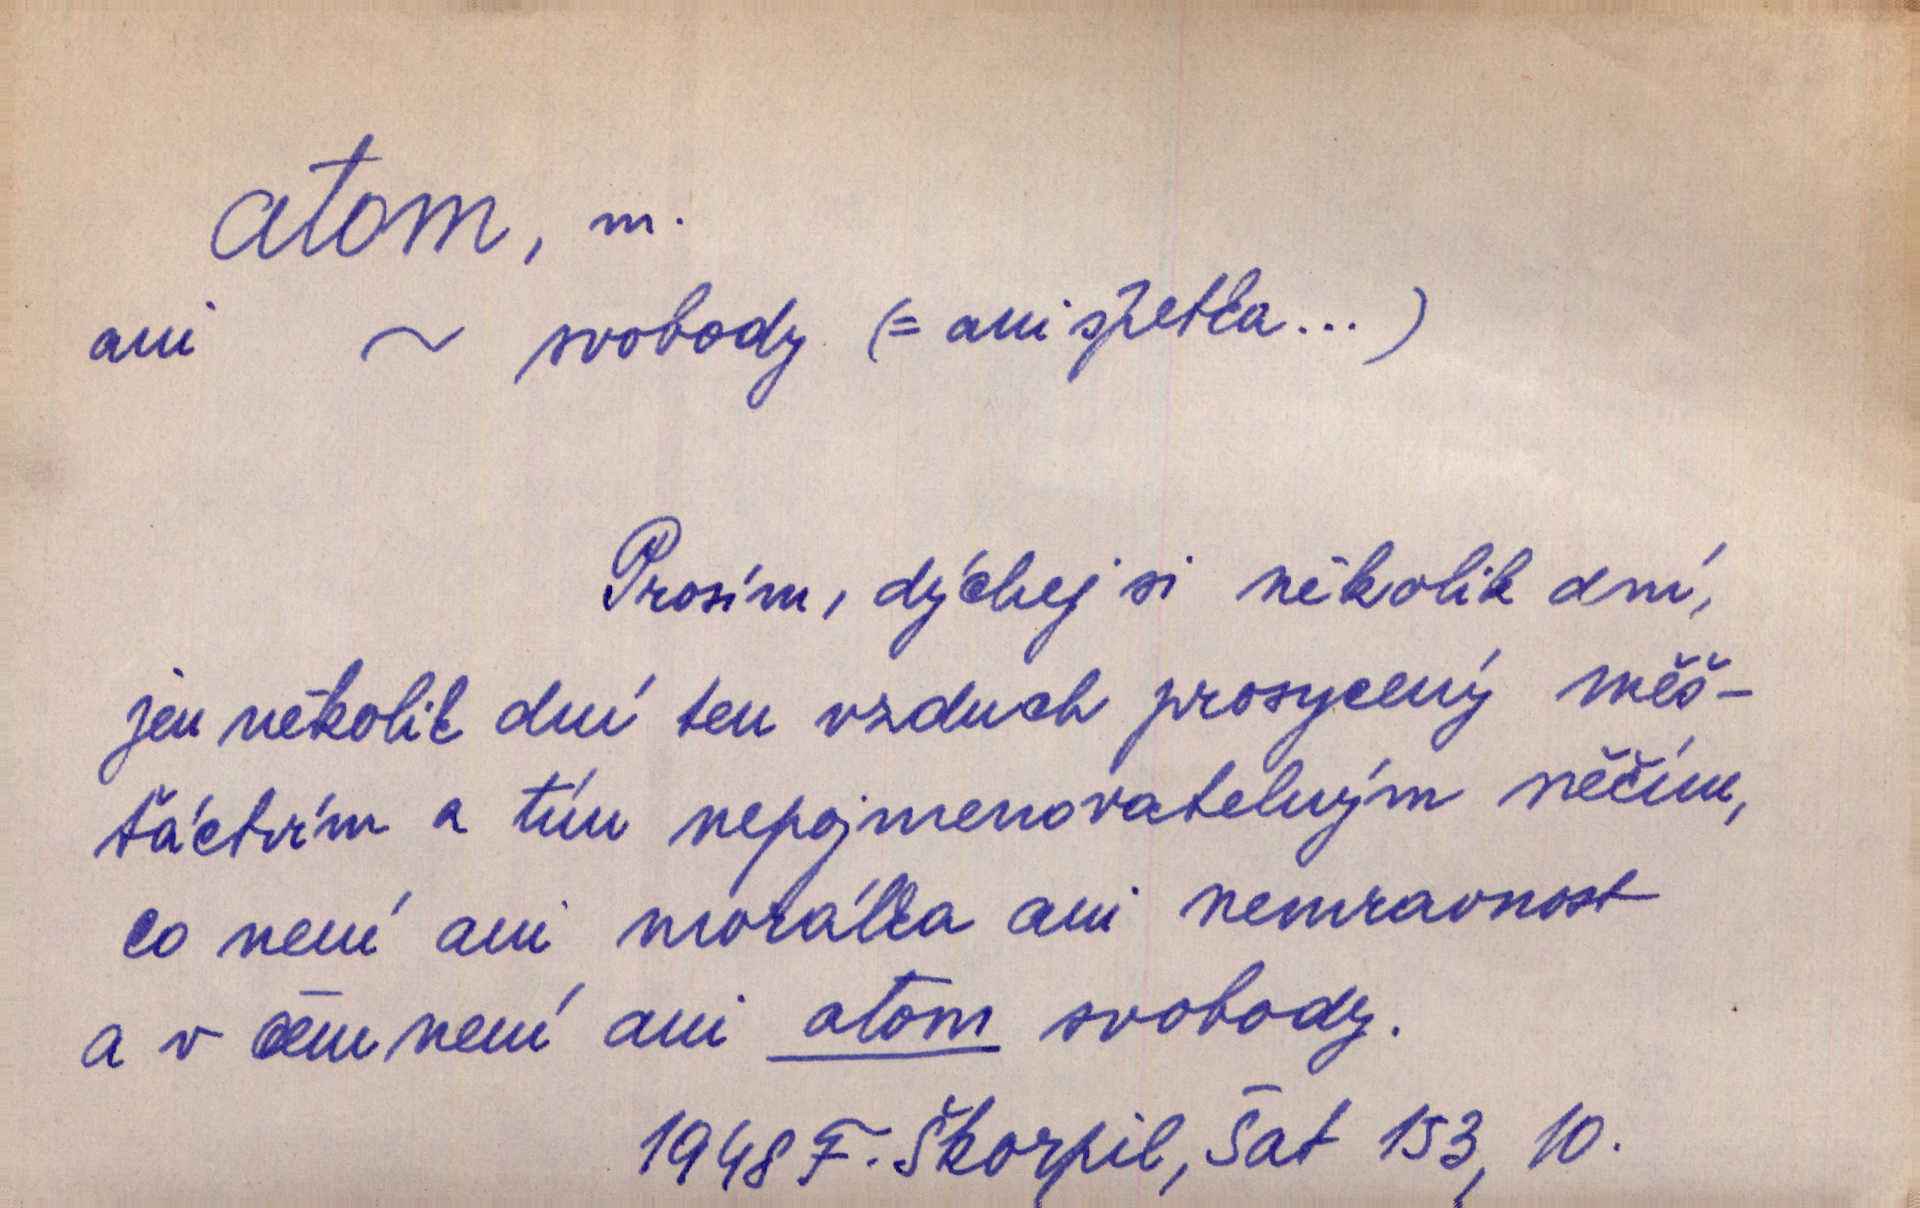 atom, m.
ani ~ svobody (= ani špetka...)
Prosím, dýchej si několik dní,
jen několik dní ten vzduch prosycený měš-
ťáctvím a tím nepojmenovatelným něčím,
co není ani morálka ani nemravnost
a v čem není ani atom svobody.
1948 F. Škorpil, Šat 153, 10.